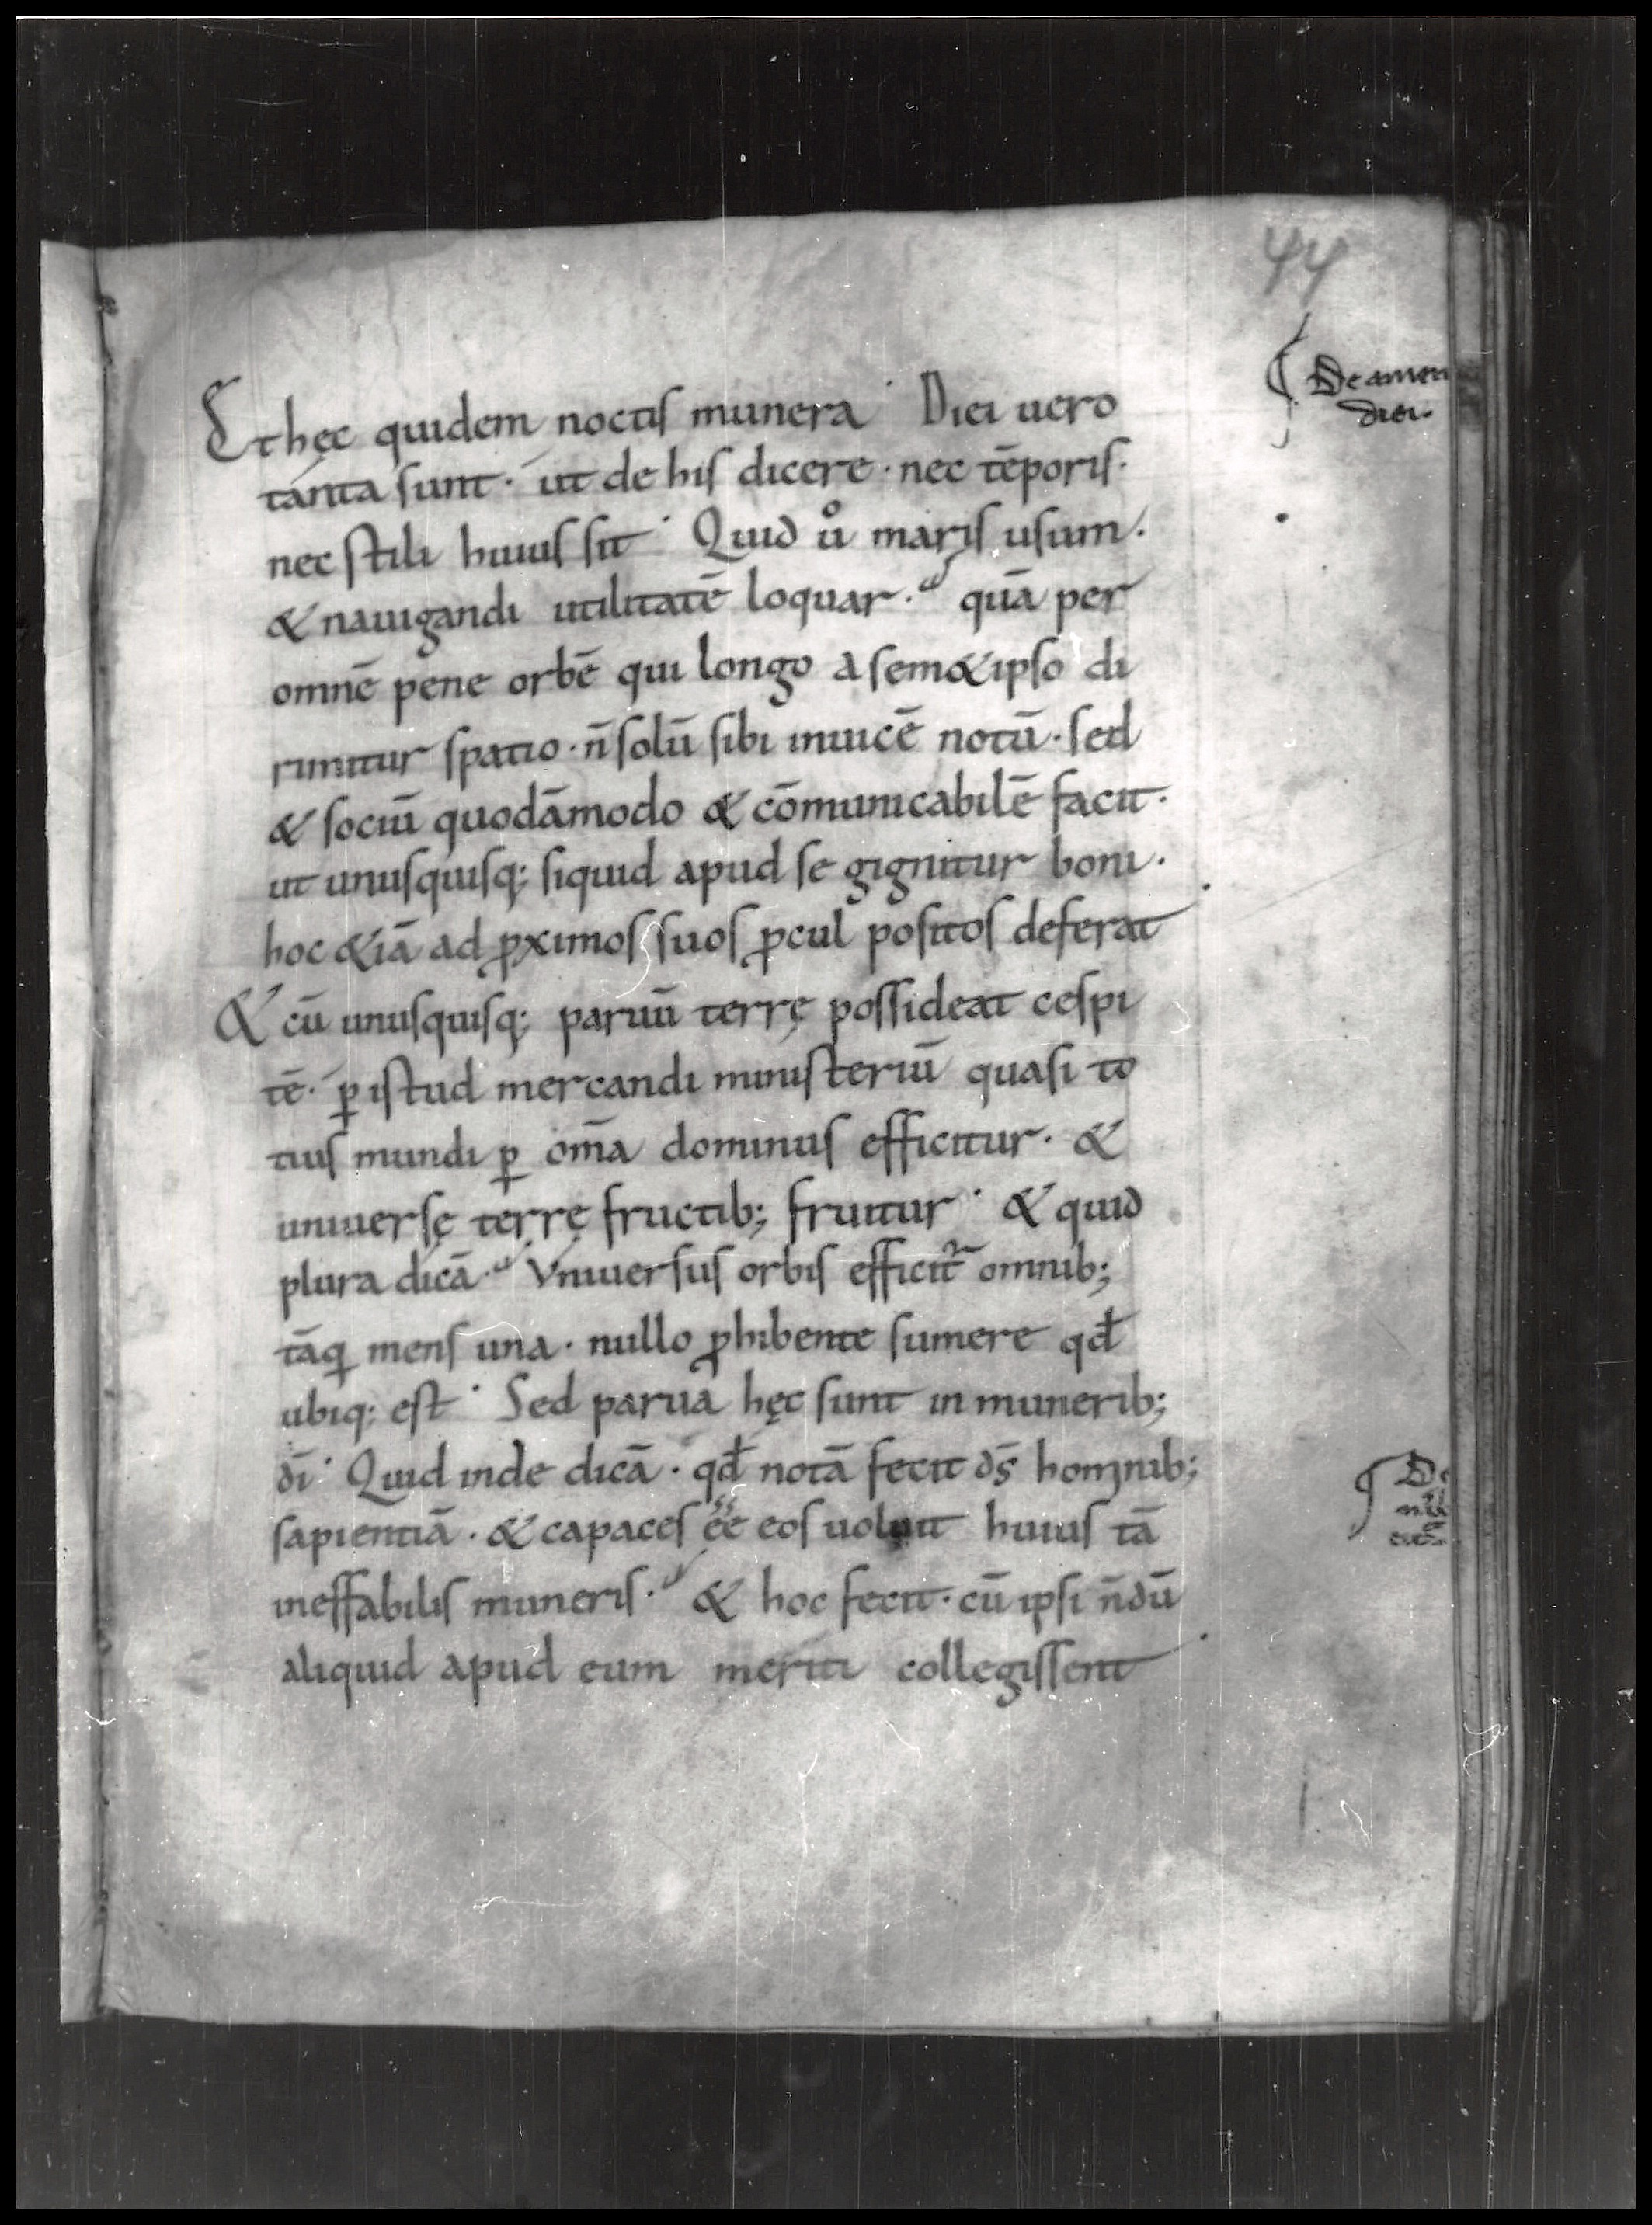 44
De amen
diei.
Et hęc quidem noctis munera · Diei uero
tánta sunt · út de his dicere · nec tēporis ·
nec stili huius sit · Quid ů maris usum ·
& nauigandi utilitatē loquar · quā per
omnē pene orbē qui longo a sem&ipso di
rimitur spatio · n̄ solū sibi inuicē notū · sed
& sociū quodāmodo & cōmunicabilē facit ·
ut unusquisq; siquid apud se gignitur boni ·
hoc &iā ad ꝓximos suos ꝓcul positos deferat ·
& cū unusquisq; paruū terrę possideat cespi
tē · ꝑ istud mercandi ministeriū quasi to
tius mundi ꝑ om̄a dominus efficitur · &
uniuersę terrę fructib; fruitur · & quid
plura dicā · Vniuersus orbis efficit᷑ omnib;
tāꝗ mens una · nullo ꝓhibente sumere qđ
ubiq; est · Sed parua hęc sunt in munerib;
d̄i · Quid inde dicā · qđ notā fecit d̄s hominib;
sapientiā · & capaces ēē eos uoluit huius tā
ineffabilis muneris · & hoc fecit · cū ipsi n̄dū
aliquid apud eum meriti collegissent ·